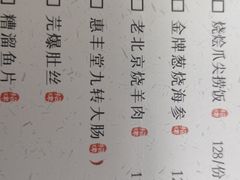 □ 烧烩爪尖捞饭 128/份
□ 金牌葱烧海参 1
□ 老北京烧羊肉 1
□ 惠丰堂九转大肠
□ 芫爆肚丝
□ 糟溜鱼片